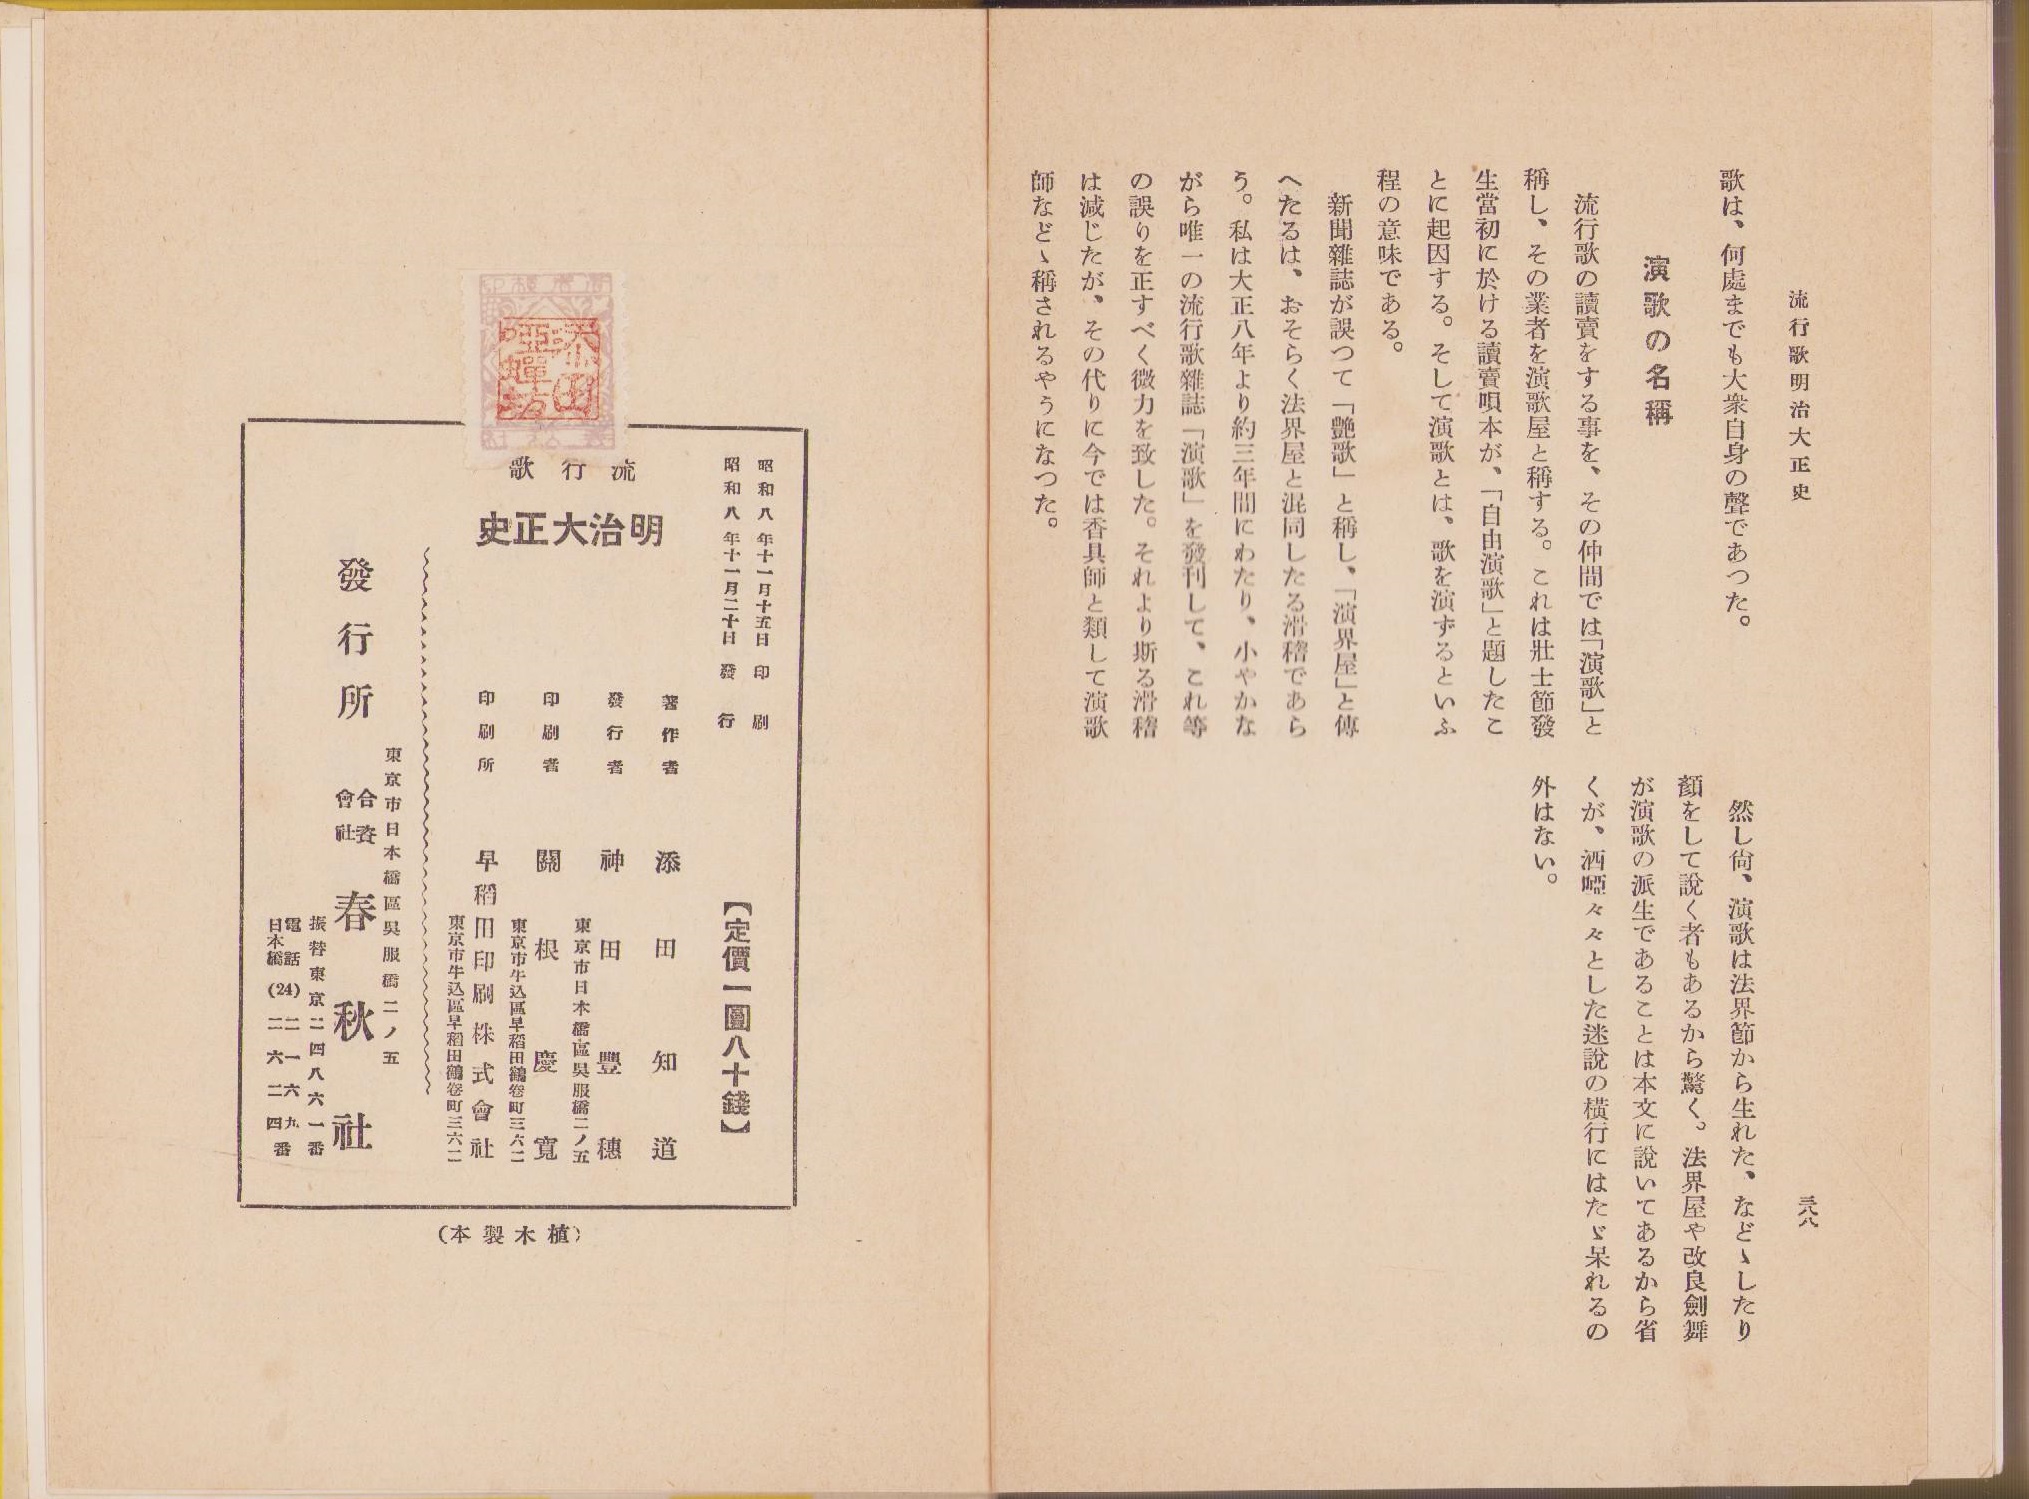 流行歌明治大正史
三八八
歌は、何處までも大衆自身の聲であつた。
演歌の名稱
流行歌の讀賣をする事を、その仲間では「演歌」と
稱し、その業者を演歌屋と稱する。これは壯士節發
生當初に於ける讀賣唄本が、「自由演歌」と題したこ
とに起因する。そして演歌とは、歌を演ずるといふ
程の意味である。
新聞雜誌が誤つて「艶歌」と稱し、「演界屋」と傳
へたるは、おそらく法界屋と混同したる滑稽であら
う。私は大正八年より約三年間にわたり、小やかな
がら唯一の流行歌雜誌「演歌」を發刊して、これ等
の誤りを正すべく微力を致した。それより斯る滑稽
は減じたが、その代りに今では香具師と類して演歌
師などゝ稱されるやうになつた。
然し尙、演歌は法界節から生れた、などゝしたり
顏をして說く者もあるから驚く。法界屋や改良劍舞
が演歌の派生であることは本文に說いてあるから省
くが、洒啞々々とした迷說の橫行にはたゞ呆れるの
外はない。
添田啞蟬坊
昭和八年十一月十五日印刷
昭和八年十一月二十日發行
【定價一圓八十錢】
流行歌
明治大正史
著作者 添田知道
發行者 神田豐穗
東京市日本橋區吳服橋二ノ五
印刷者 關根慶寬
東京市牛込區早稻田鶴卷町三六二
印刷所 早稻田印刷株式會社
東京市牛込區早稻田鶴卷町三六二
東京市日本橋區吳服橋二ノ五
發行所 合資會社 春秋社
振替東京二四八六一番
電話日本橋(24)二一六九
二六二四番
(植木製本)